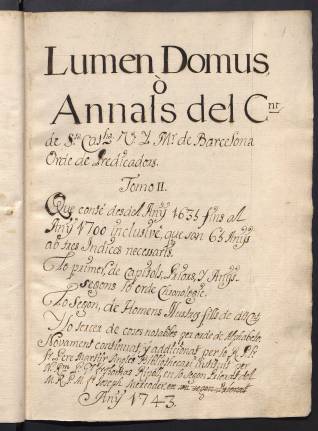 1
Lumen Domus,
ò
Annals del Cnt
de Sta Catha V. y Mr de Barcelona
Orde de Predicadors.
Tomo II.
Que conté desdel Any 1635 fins al
Any 1700 inclusivé, que son 65 Anys
ab tres Indices necessaris.
Lo primer, de Capitols, Priors, y Anys
segons lo orde Chronologic.
Lo segon, de Homens Illustres fills de
Y lo tercer de coses notables per orde de Alphabeto.
Novament continuat, y addicionat per lo R. P. Fr.
Fr. Pere Martyr Anglés Bibliothecari
lo segon
M. R. P. M. Fr. Joseph Mercader en son segon
Any 1743.